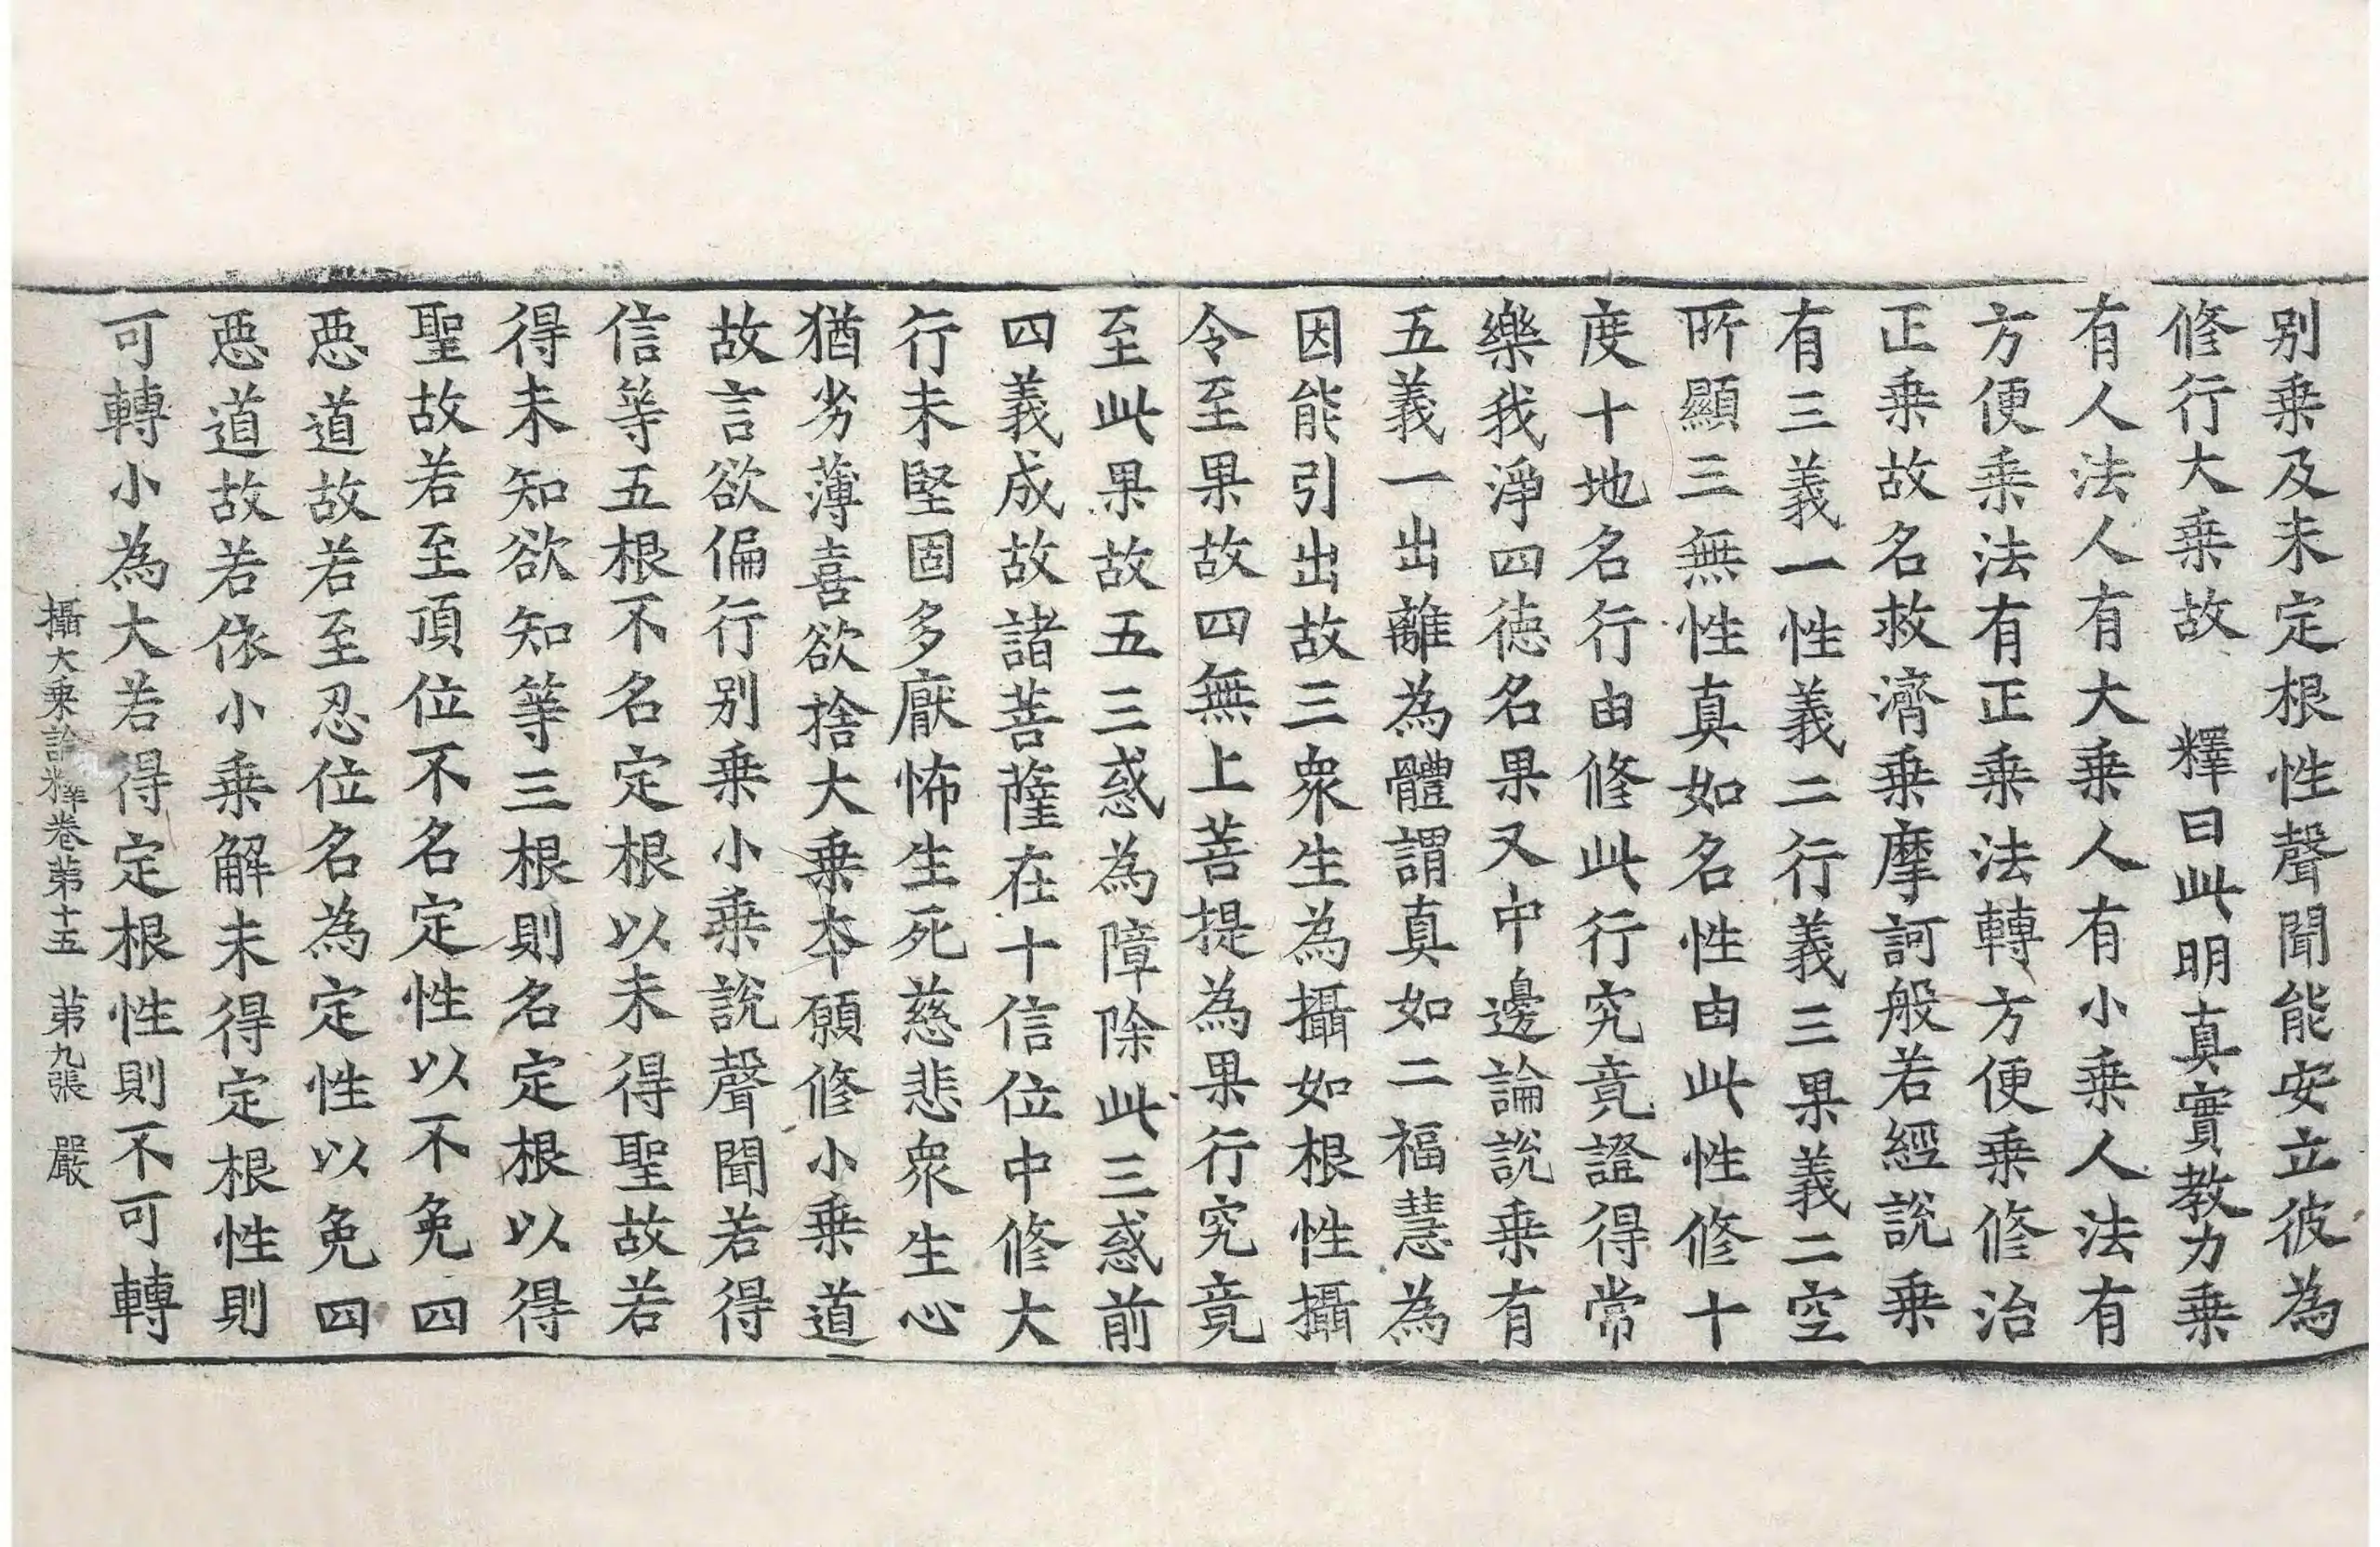 别乗及未定根性聲聞能安立彼為
修行大乗故　釋曰此明真實教力乗
有人法人有大乗人有小乗人法有
方便乗法有正乗法轉方便乗修治
正乗故名救濟乗摩訶般若經說乗
有三義一性義二行義三果義二空
所顯三無性真如名性由此性修十
度十地名行由修此行究竟證得常
樂我淨四徳名果又中邊論說乗有
五義一出離為體謂真如二福慧為
因能引出故三衆生為攝如根性攝
令至果故四無上菩提為果行究竟
至此果故五三惑為障除此三惑前
四義成故諸菩薩在十信位中修大
行未堅固多厭怖生死慈悲衆生心
猶劣薄喜欲捨大乗本願修小乗道
故言欲偏行别乗小乗說聲聞若得
信等五根不名定根以未得聖故若
得未知欲知等三根則名定根以得
聖故若至頂位不名定性以不免四
惡道故若至忍位名為定性以免四
惡道故若依小乗解未得定根性則
可轉小為大若得定根性則不可轉
攝大乗論釋卷第十五　第九張　嚴